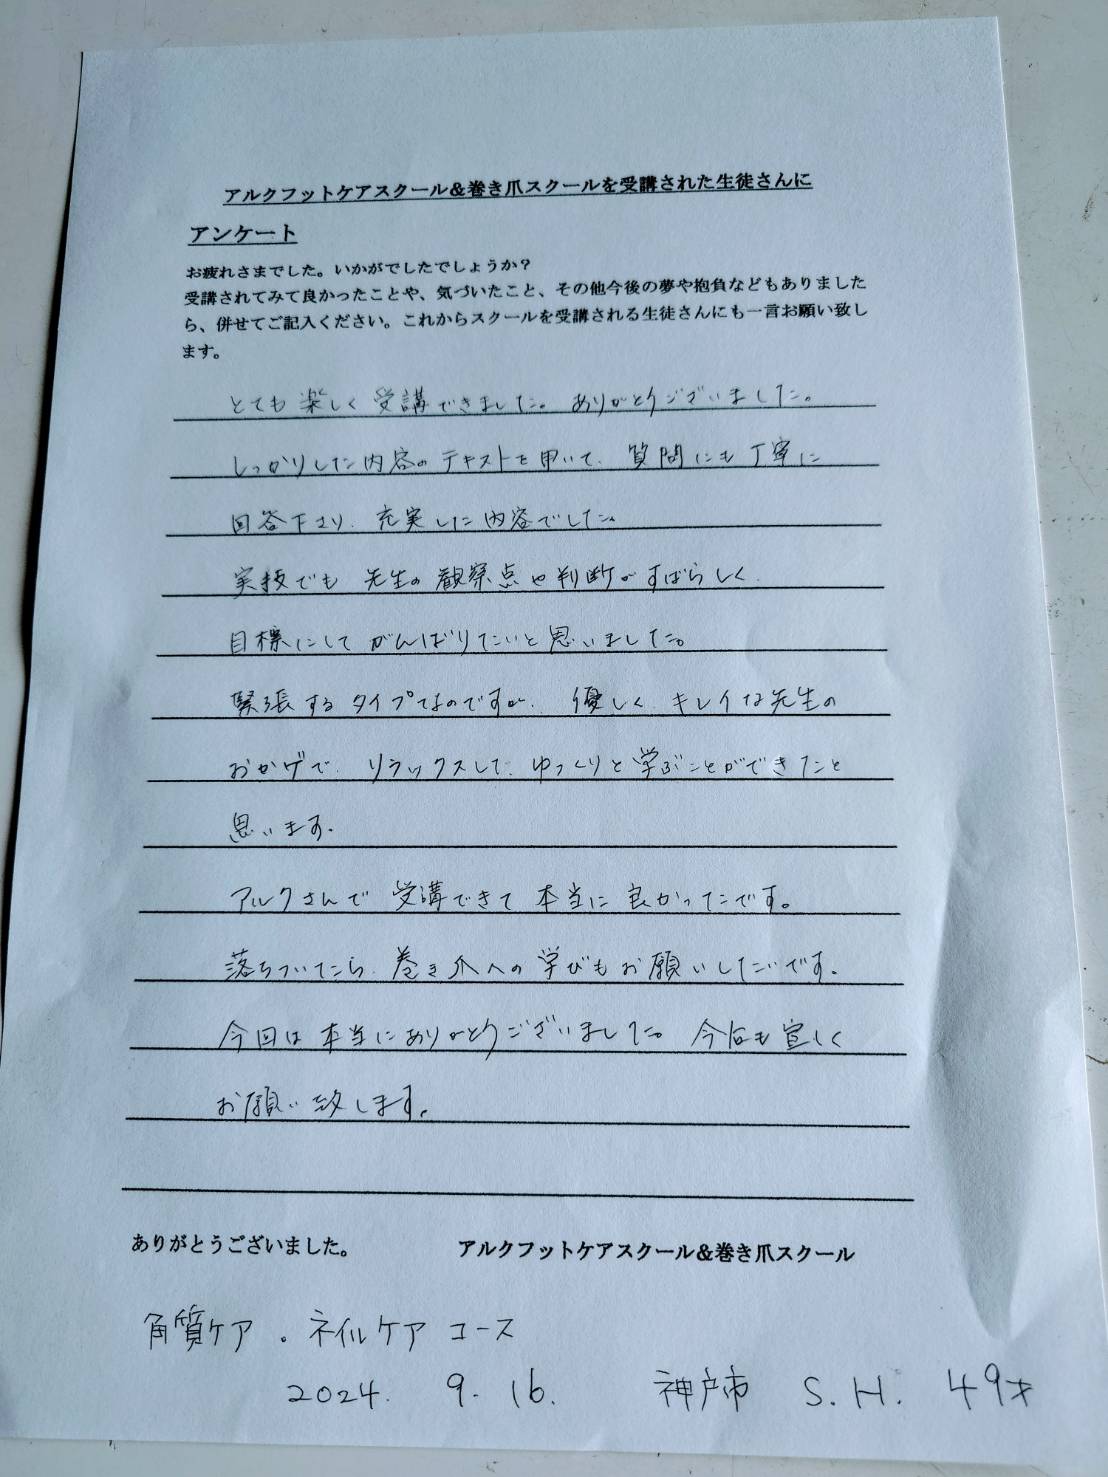 アルクフットケアスクール&巻き爪スクールを受講された生徒さんに
アンケート
お疲れさまでした。いかがでしたでしょうか?
受講されてみて良かったことや、気づいたこと、その他今後の夢や抱負などもありました
ら、併せてご記入ください。これからスクールを受講される生徒さんにも一言お願い致し
ます。
とても楽しく受講できました。ありがとうございました。
しっかりした内容のテキストを用いて、質問にも丁寧に
回答下さり、充実した内容でした。
実技でも先生の観察点や判断がすばらしく、
目標にしてがんばりたいと思いました。
緊張するタイプなのですが、優しくキレイな先生の
おかげで、リラックスして、ゆっくりと学ぶことができたと
思います。
アルクさんで受講できて本当に良かったです。
落ちついたら、巻き爪への学びもお願いしたいです。
今回は本当にありがとうございました。今后も宜しく
お願い致します。
ありがとうございました。 アルクフットケアスクール&巻き爪スクール
角質ケア・ネイルケアコース
2024. 9. 16. 神戸市 S.H. 49才